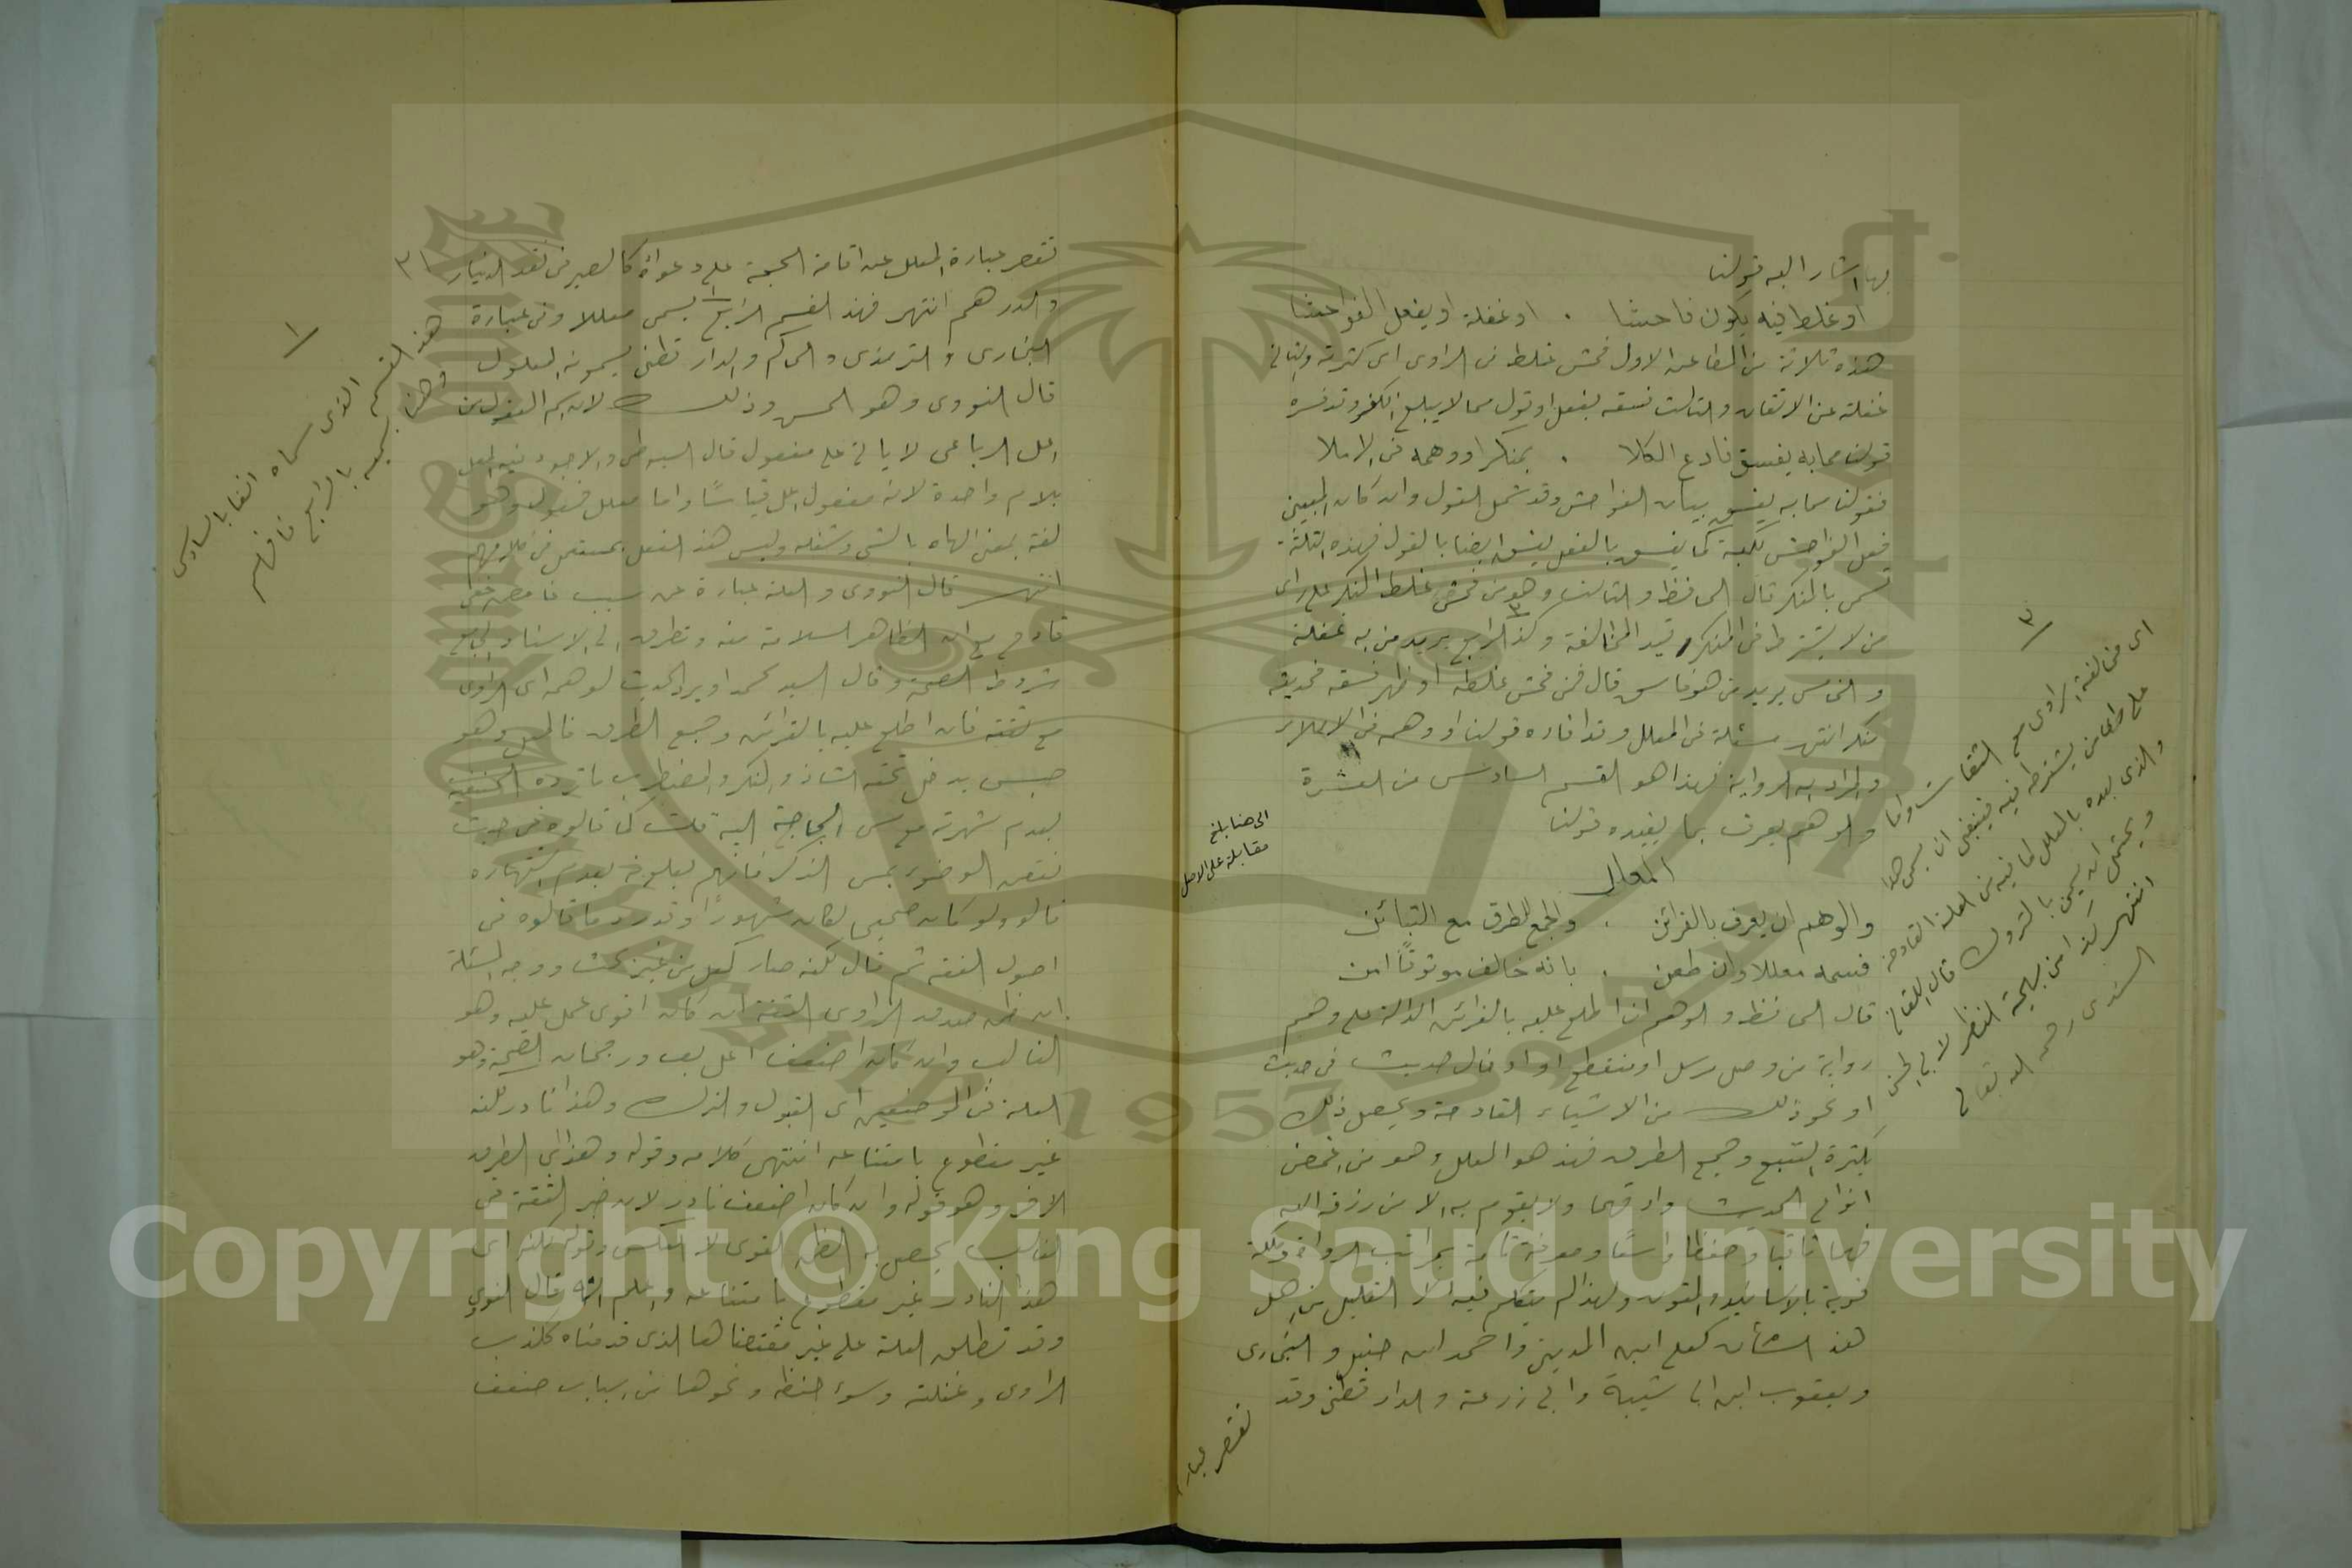 بها اشار اليه قولنا
او غلط فيه يكون فاحشا . او غفلة او يفعل الفواحشا
هذه ثلاثة من المطاعن الاول فحش غلط من الراوى اى كثرته والثانى
غفلته عن الاتقان والثالث فسقه بفعل او قول مما لا يبلغ الكفر وقد فسره
قولنا مما به يفسق فادع الكلا . بمنكر او وهمه فى الاملا
فقولنا مما به يفسق بيان الفواحش وقد شمل القول وان كان المبين
فعل الفواحش لكنه كما يفسق بالفعل يفسق ايضا بالقول فهذه الثلثة
تسمى بالمنكر قال الحافظ والثالث وهو من فحش غلطه المنكر على راى
من لا يشترط فى المنكر قيد المخالفة وكذا الرابع يريد من به غفلة
والخامس يريد من هو فاسق قال فمن فحش غلطه او ظهر فسقه فحديثه
منكر انتهى مسئلة فى المعلل وقد افاده قولنا او وهمه فى الاملاء
والمراد به الرواية فهذا هو القسم السادس من العشرة
والوهم يعرف بما يفيده قولنا
المعلل
والوهم ان يعرف بالقرائن . والجمع للطرق مع التبائن
فسمه معللا وان طعن . بانه خالف موثوقا امن
قال الحافظ والوهم ان اطلع عليه بالقرائن الدالة على وهم
رواية من وصل مرسل او منقطع او ادخال حديث فى حديث
او نحو ذلك من الاشياء القادحة ويحصل ذلك
بكثرة التتبع وجمع الطرق فهذا هو المعلل وهو من اغمض
انواع الحديث وادقها ولا يقوم به الا من رزقه الله
فهما ثاقبا وحفظا واسعا ومعرفة تامة بمراتب الرواة وملكة
قوية بالاسانيد والمتون ولهذا لم يتكلم فيه الا القليل من اهل
هذا الشأن كعلى ابن المدينى واحمد ابن حنبل والبخارى
ويعقوب ابن ابى شيبة وابى زرعة والدارقطنى وقد
تقصر عبارة
٣
اى مخالفة الراوى مع الثقات واما
على راى من يشترط فيه فينبغى ان يسمى هذا
والذى بعده بالمعلل لما فيه من العلة القادحة
ويحتمل ان يسمى بالمتروك قال اللقانى
انتهى كذا من بهجة النظر لابى الحسن
السندى رحمه الله تعالى
الى هنا بلغ
مقابلة على الاصل
٣١
تقصر عبارة المعلل عن اقامة الحجة على دعواه كالصيرفى نقد الدينار
والدرهم انتهى فهذا القسم الرابع يسمى معللا وفى عبارة
البخارى والترمذى والحاكم والدارقطنى يسمونه المعلول
قال النووى وهو لحن وذلك لان اسم المفعول من
اعل الرباعى لا ياتى على مفعول قال السيوطى والاجود فيه المعل
بلام واحدة لانه مفعول اعل قياسًا واما معلل فمفعول وهو
لغة بمعنى الهاه بالشى وشغله وليس هذا الفعل بمستعمل فى كلامهم
انتهى قال النووى والعلة عبارة عن سبب غامض خفى
قادح مع ان الظاهر السلامة منه وتطرق الى الاسناد الجامع
شروط الصحة وقال السيد محمد او يرد الحديث لوهمه اى الراوى
مع ثقته فان اطلع عليه بالقرائن وجمع الطرق فالمعل وهو
جنس يدخل تحته الشاذ والمنكر والمضطرب ما ترده الحنفية
لعدم شهرته مع مس الحاجة اليه قلت كما قالوه فى حديث
نقض الوضوء بمس الذكر فانهم بعدم اشتهاره
قالو ولو كان صحيحا لكان مشهورًا وقد رد ما قالوه فى
اصول الفقه ثم قال لكنه صار كعل من غير بحث ووجه المسئلة
ان ظن صدق الراوى الثقة ان كان اقوى عمل عليه وهو
الغالب وان كان اضعف اعل به ورجحان الصحة وهو
العلة فى الموضعين اى القبول والترك وهذا نادر لكنه
غير مقطوع بامتناعه انتهى كلامه وقوله وهذا اى الطرف
الاخر وهو قوله وان كان اضعف نادر لان خبر الثقة فى
الغالب يحصل به الظن القوى لا العكس وقوله لكنه اى
هذا النادر غير مقطوع بامتناعه واعلم انه قال النووي
وقد تطلق العلة على غير مقتضاها الذى قدمناه ككذب
الراوى وغفلته وسوء حفظه ونحوها من اسباب ضعف
١
هذا القسم الذى سماه انفا بالسادس
وهنا سماه بالرابع فافهم
Copyright © King Saud University
1957